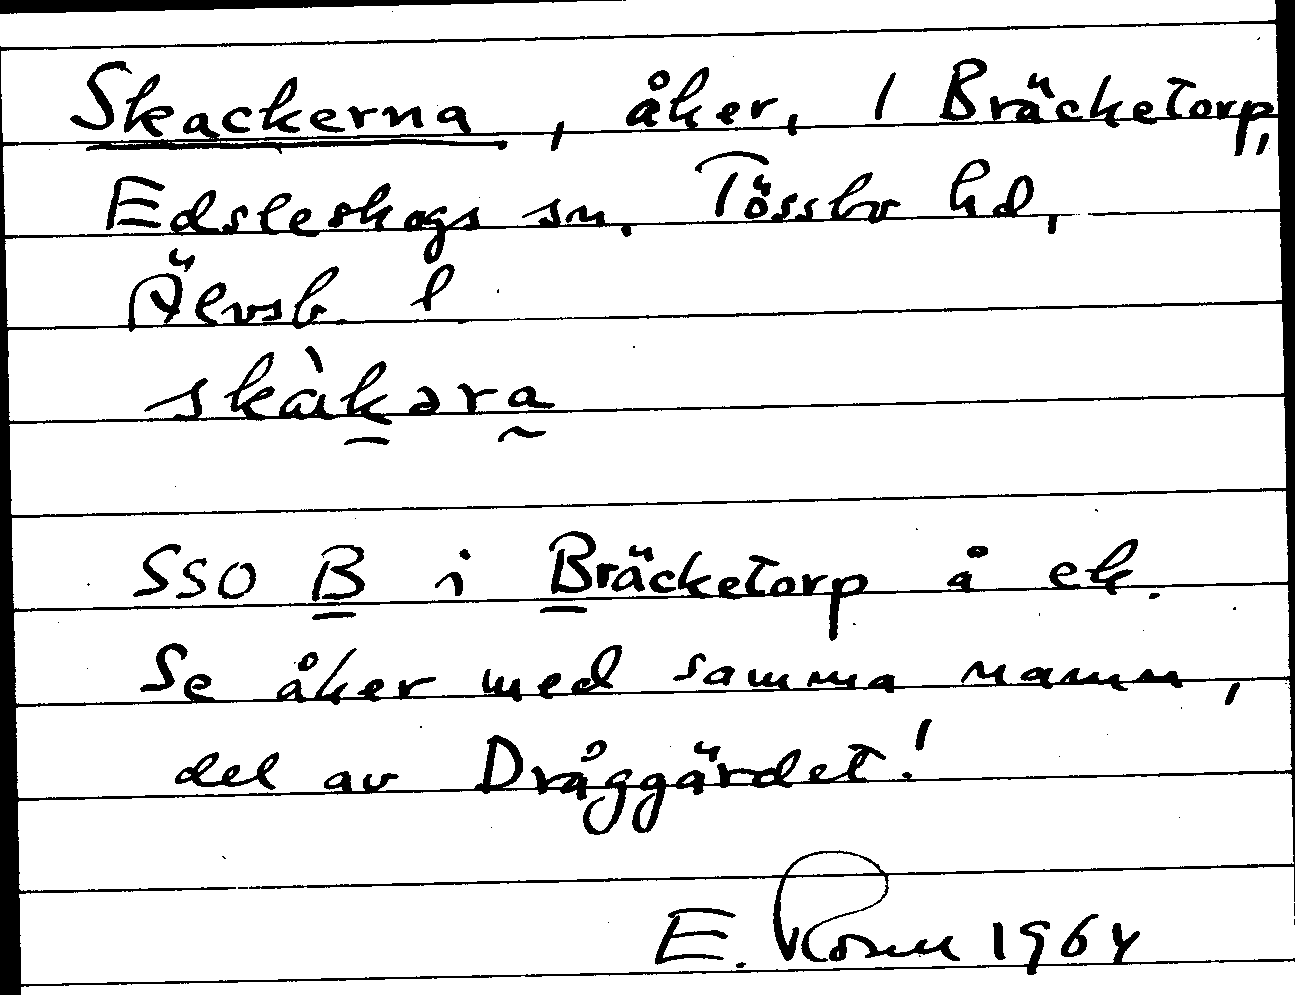 Skackerna, åker, 1 Bräcketorp,
Edsleskogs sn. Tössbo hd,
Älvsb. l
skàkəra
SSO B i Bräcketorp å ek.
Se åker med samma namn,
del av Dråggärdet!
E. Rosen 1964